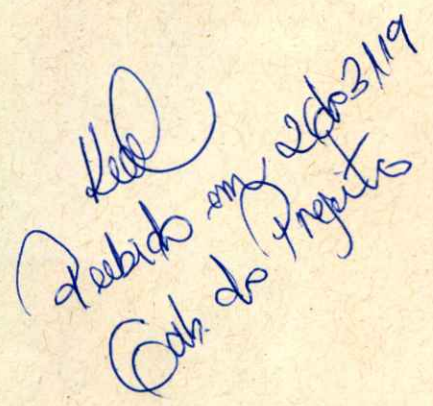 Recebido em 26/03/19
Gab. do Prefeito